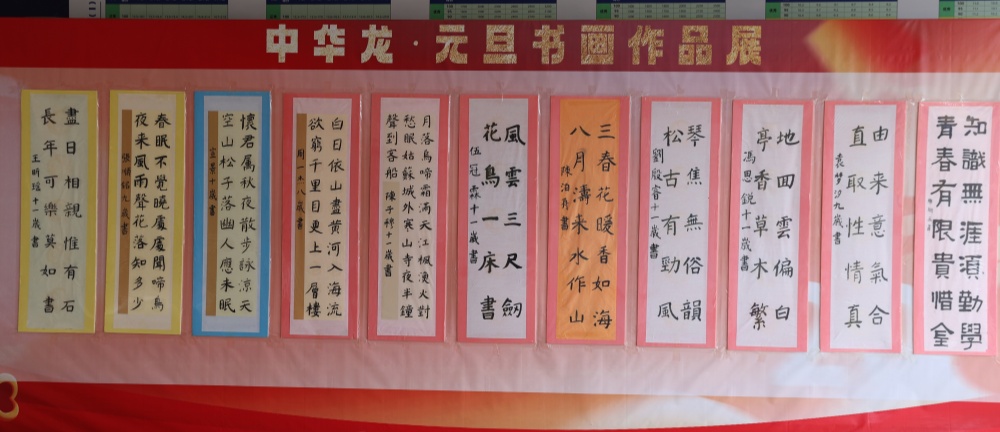 中华龙·元旦书画作品展
盡日相親惟有石
長年可樂莫如書
王明瑤十一歲書
春眠不覺曉處處聞啼鳥
夜来風雨聲花落知多少
懷君属秋夜散步詠涼天
空山松子落幽人應未眠
白日依山盡黄河入海流
欲窮千里目更上一層樓
月落烏啼霜滿天江楓漁火對
愁眠姑蘇城外寒山寺夜半鐘
聲到客船
風雲三尺劒
花鳥一床書
伍冠霖十一歲書
三春花暖香如海
八月濤来水作山
琴焦無俗韻
松古有勁風
劉殷睿十一歲書
地回雲偏白
亭香草木繁
馮思銳十一歲書
由来意氣合
直取性情真
知識無涯須勤學
青春有限貴惜金